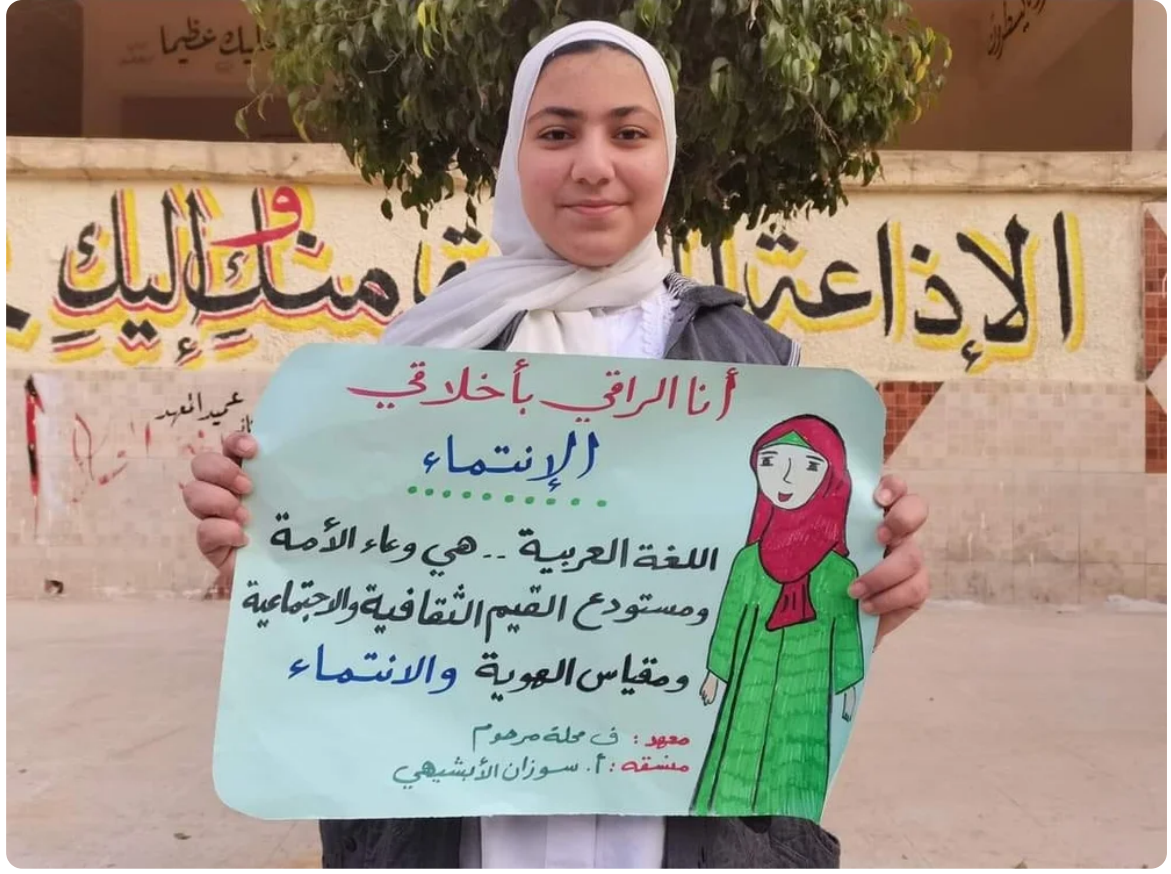 عليك عظيما
الإذاعة
منك وإليك
عميد المعهد
أنا الراقي بأخلاقي
الإنتماء
اللغة العربية .. هي وعاء الأمة
ومستودع القيم الثقافية والاجتماعية
ومقياس الهوية والانتماء
معهد : ف محلة مرحوم
منسقه : أ. سوزان الأبشيهي